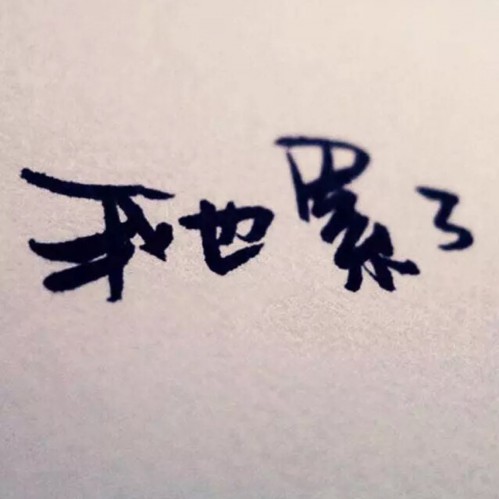 我也累了